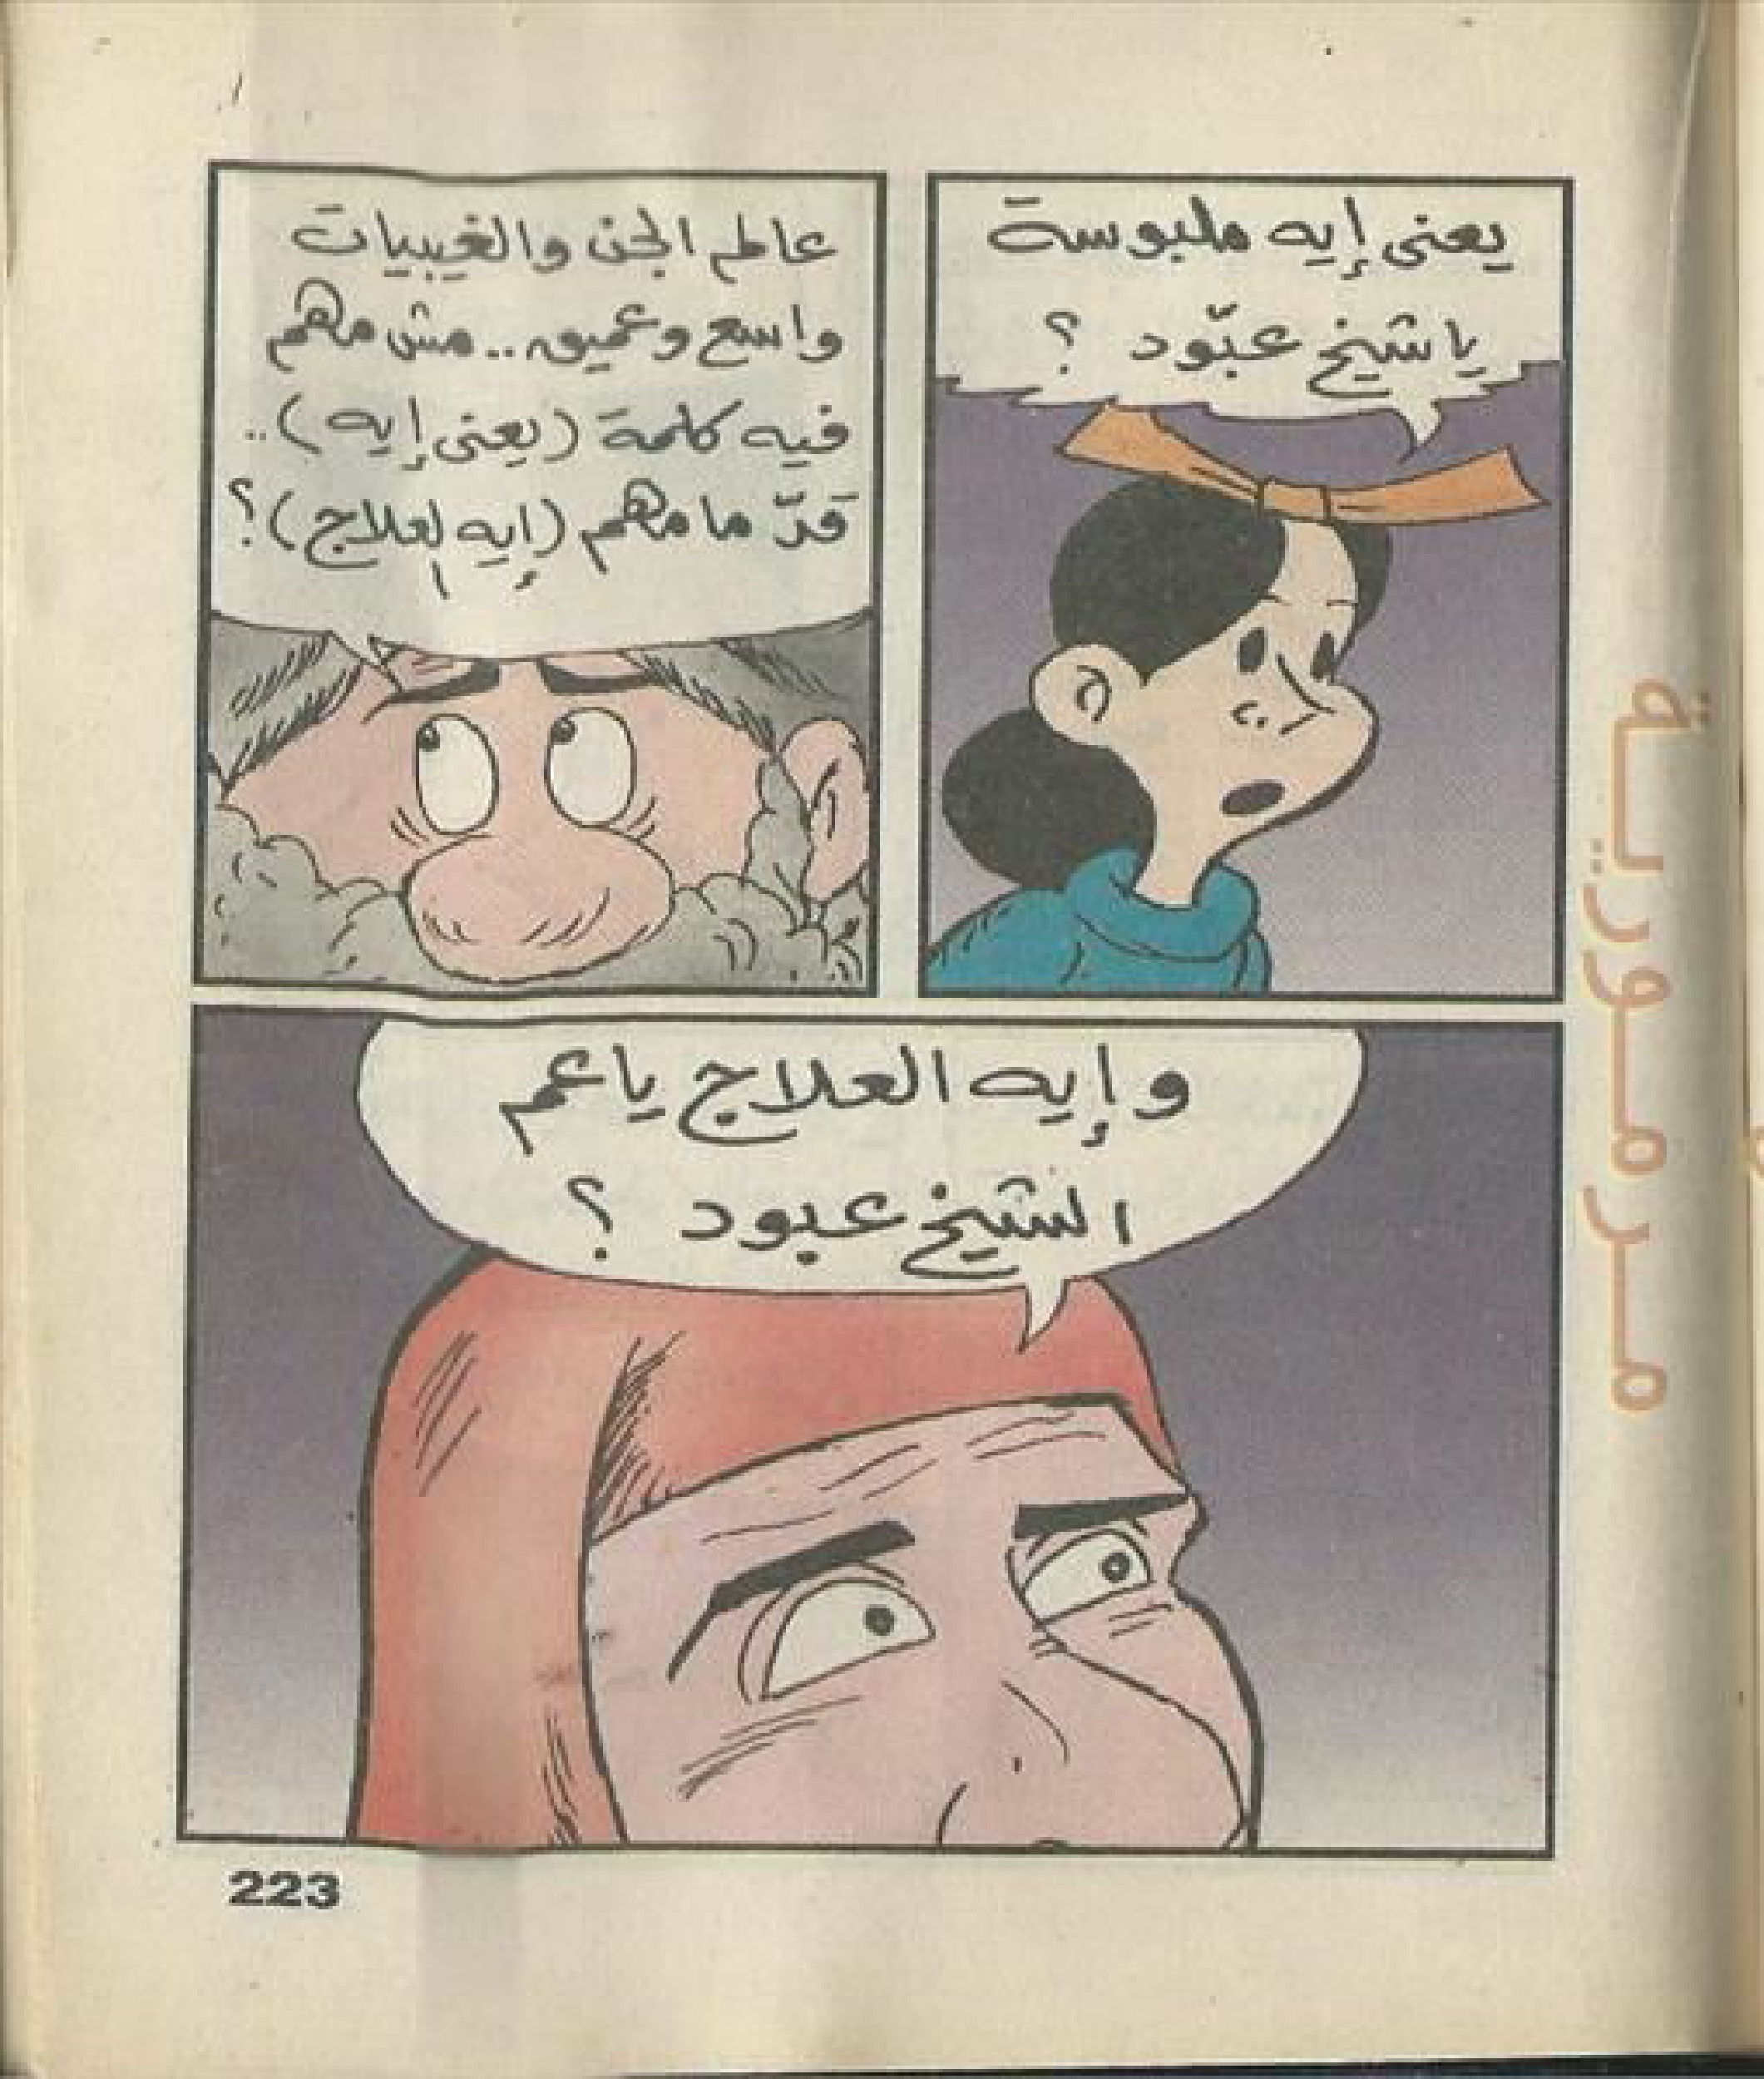 يعنى إيه ملبوسة
ياشيخ عبّود ؟
عالم الجن والغيبيات
واسع وعميق.. مش مهم
فيه كلمة (يعنى إيه)..
قدّ ما مهم (إيه لعلاج)؟
وإيه العلاج ياعم
الشيخ عبود ؟
مرمورية
223